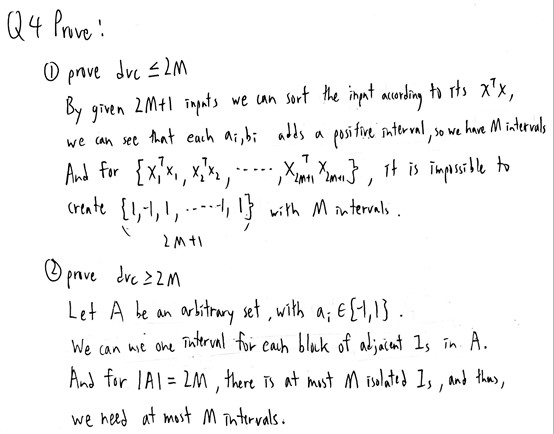 Q4 Prove:
① prove dvc ≤ 2M
By given 2M+1 inputs we can sort the input according to its xᵀx,
we can see that each ai,bi adds a positive interval, so we have M intervals
And for {x₁ᵀx₁, x₂ᵀx₂, ·····, x₂ₘ₊₁ᵀ x₂ₘ₊₁}, it is impossible to
create {1,-1,1,·····-1, 1} with M intervals.
2M+1
② prove dvc ≥ 2M
Let A be an arbitrary set, with aᵢ ∈ {-1,1}.
We can use one interval for each block of adjacent 1s in A.
And for |A| = 2M, there is at most M isolated 1s, and thus,
we need at most M intervals.